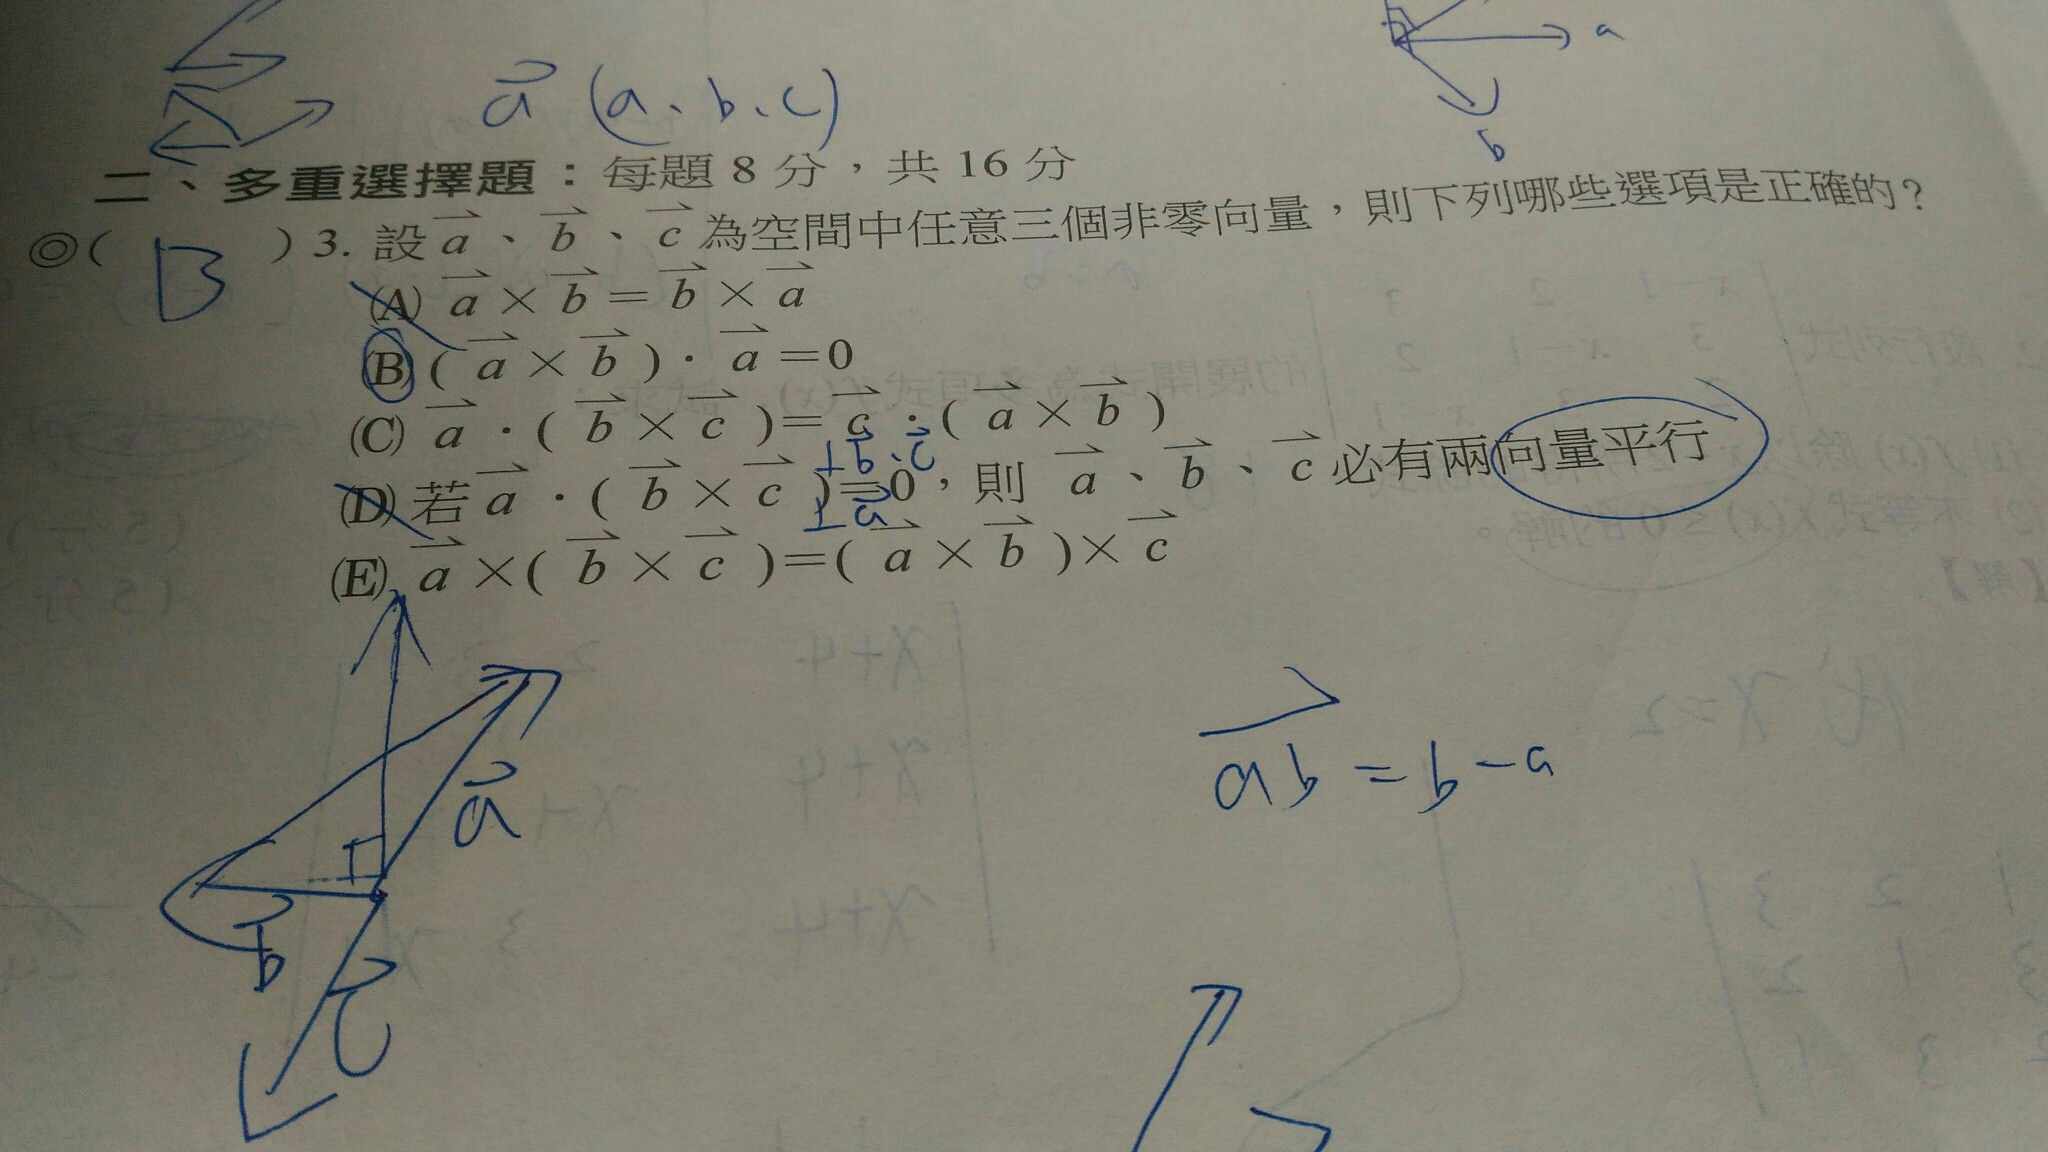 a
a⃗ (a、b、c)
b
二、多重選擇題：每題 8 分，共 16 分
◎( B ) 3. 設 a⃗、b⃗、c⃗ 為空間中任意三個非零向量，則下列哪些選項是正確的？
(A) a⃗ × b⃗ = b⃗ × a⃗
(B) ( a⃗ × b⃗ )· a⃗ =0
(C) a⃗ ·( b⃗ × c⃗ )= c⃗ ·( a⃗ × b⃗ )
(D) 若 a⃗ ·( b⃗ × c⃗ )=0，則 a⃗、b⃗、c⃗ 必有兩向量平行
(E) a⃗ ×( b⃗ × c⃗ )=( a⃗ × b⃗ )× c⃗
a⃗
ab⃗ = b - a
b⃗
c⃗